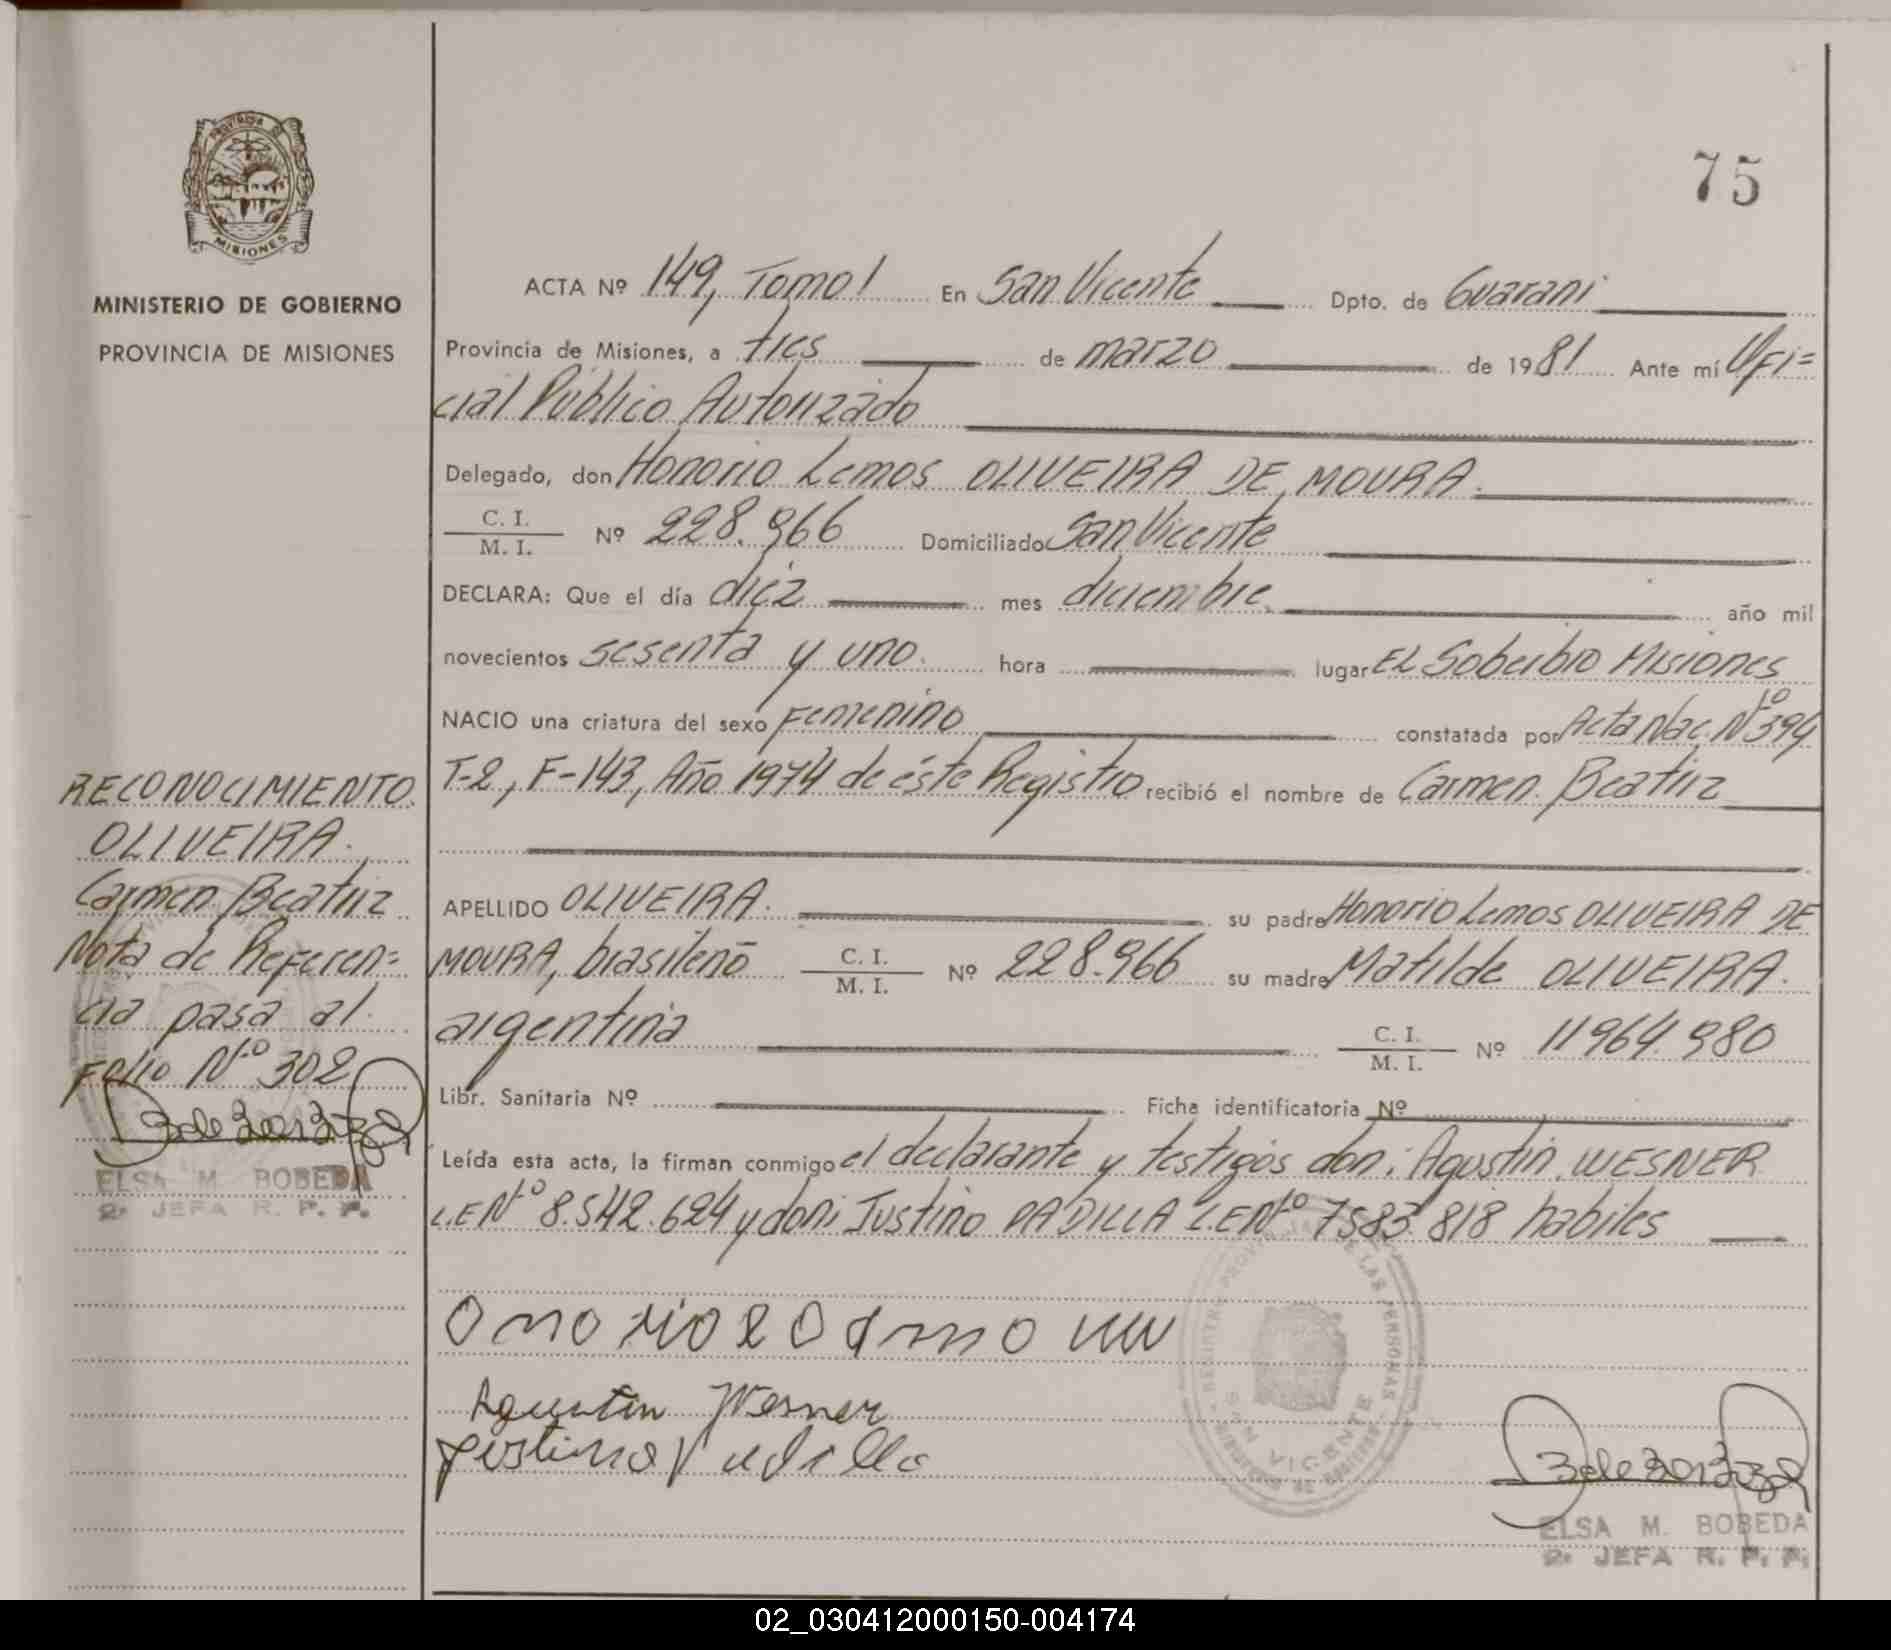 PROVINCIA DE
MISIONES
MINISTERIO DE GOBIERNO
PROVINCIA DE MISIONES
75
ACTA Nº 149, Tomo I En San Vicente Dpto. de Guarani
Provincia de Misiones, a tres de marzo de 1981 Ante mí Ofi=
cial Público Autorizado
Delegado, don Honorio Lemos OLIVEIRA DE MOURA.
C. I.
M. I. Nº 228.966 Domiciliado San Vicente
DECLARA: Que el día diez mes diciembre año mil
novecientos sesenta y uno. hora lugar EL Soberbio Misiones
NACIO una criatura del sexo Femenino constatada por Acta Nac. Nº 394
T-2, F-143, Año 1974 de éste Registro recibió el nombre de Carmen Beatriz
APELLIDO OLIVEIRA. su padre Honorio Lemos OLIVEIRA DE
MOURA, brasileño C. I.
M. I. Nº 228.966 su madre Matilde OLIVEIRA.
argentina C. I.
M. I. Nº 11964.980
Libr. Sanitaria Nº Ficha identificatoria Nº
Leída esta acta, la firman conmigo el declarante y testigos don: Agustin WESNER
L.E Nº 8.542.624 y don: Justino PADILLA L.E Nº 7583.818 habiles
Agustin Wesner
Justino Padilla
SAN VICENTE
ELSA M. BOBEDA
2º JEFA R. P. P.
RECONOCIMIENTO.
OLIVEIRA.
Carmen Beatriz
Nota de Referen=
cia pasa al
Folio Nº 302
ELSA M. BOBEDA
2º JEFA R. P. P.
02_030412000150-004174